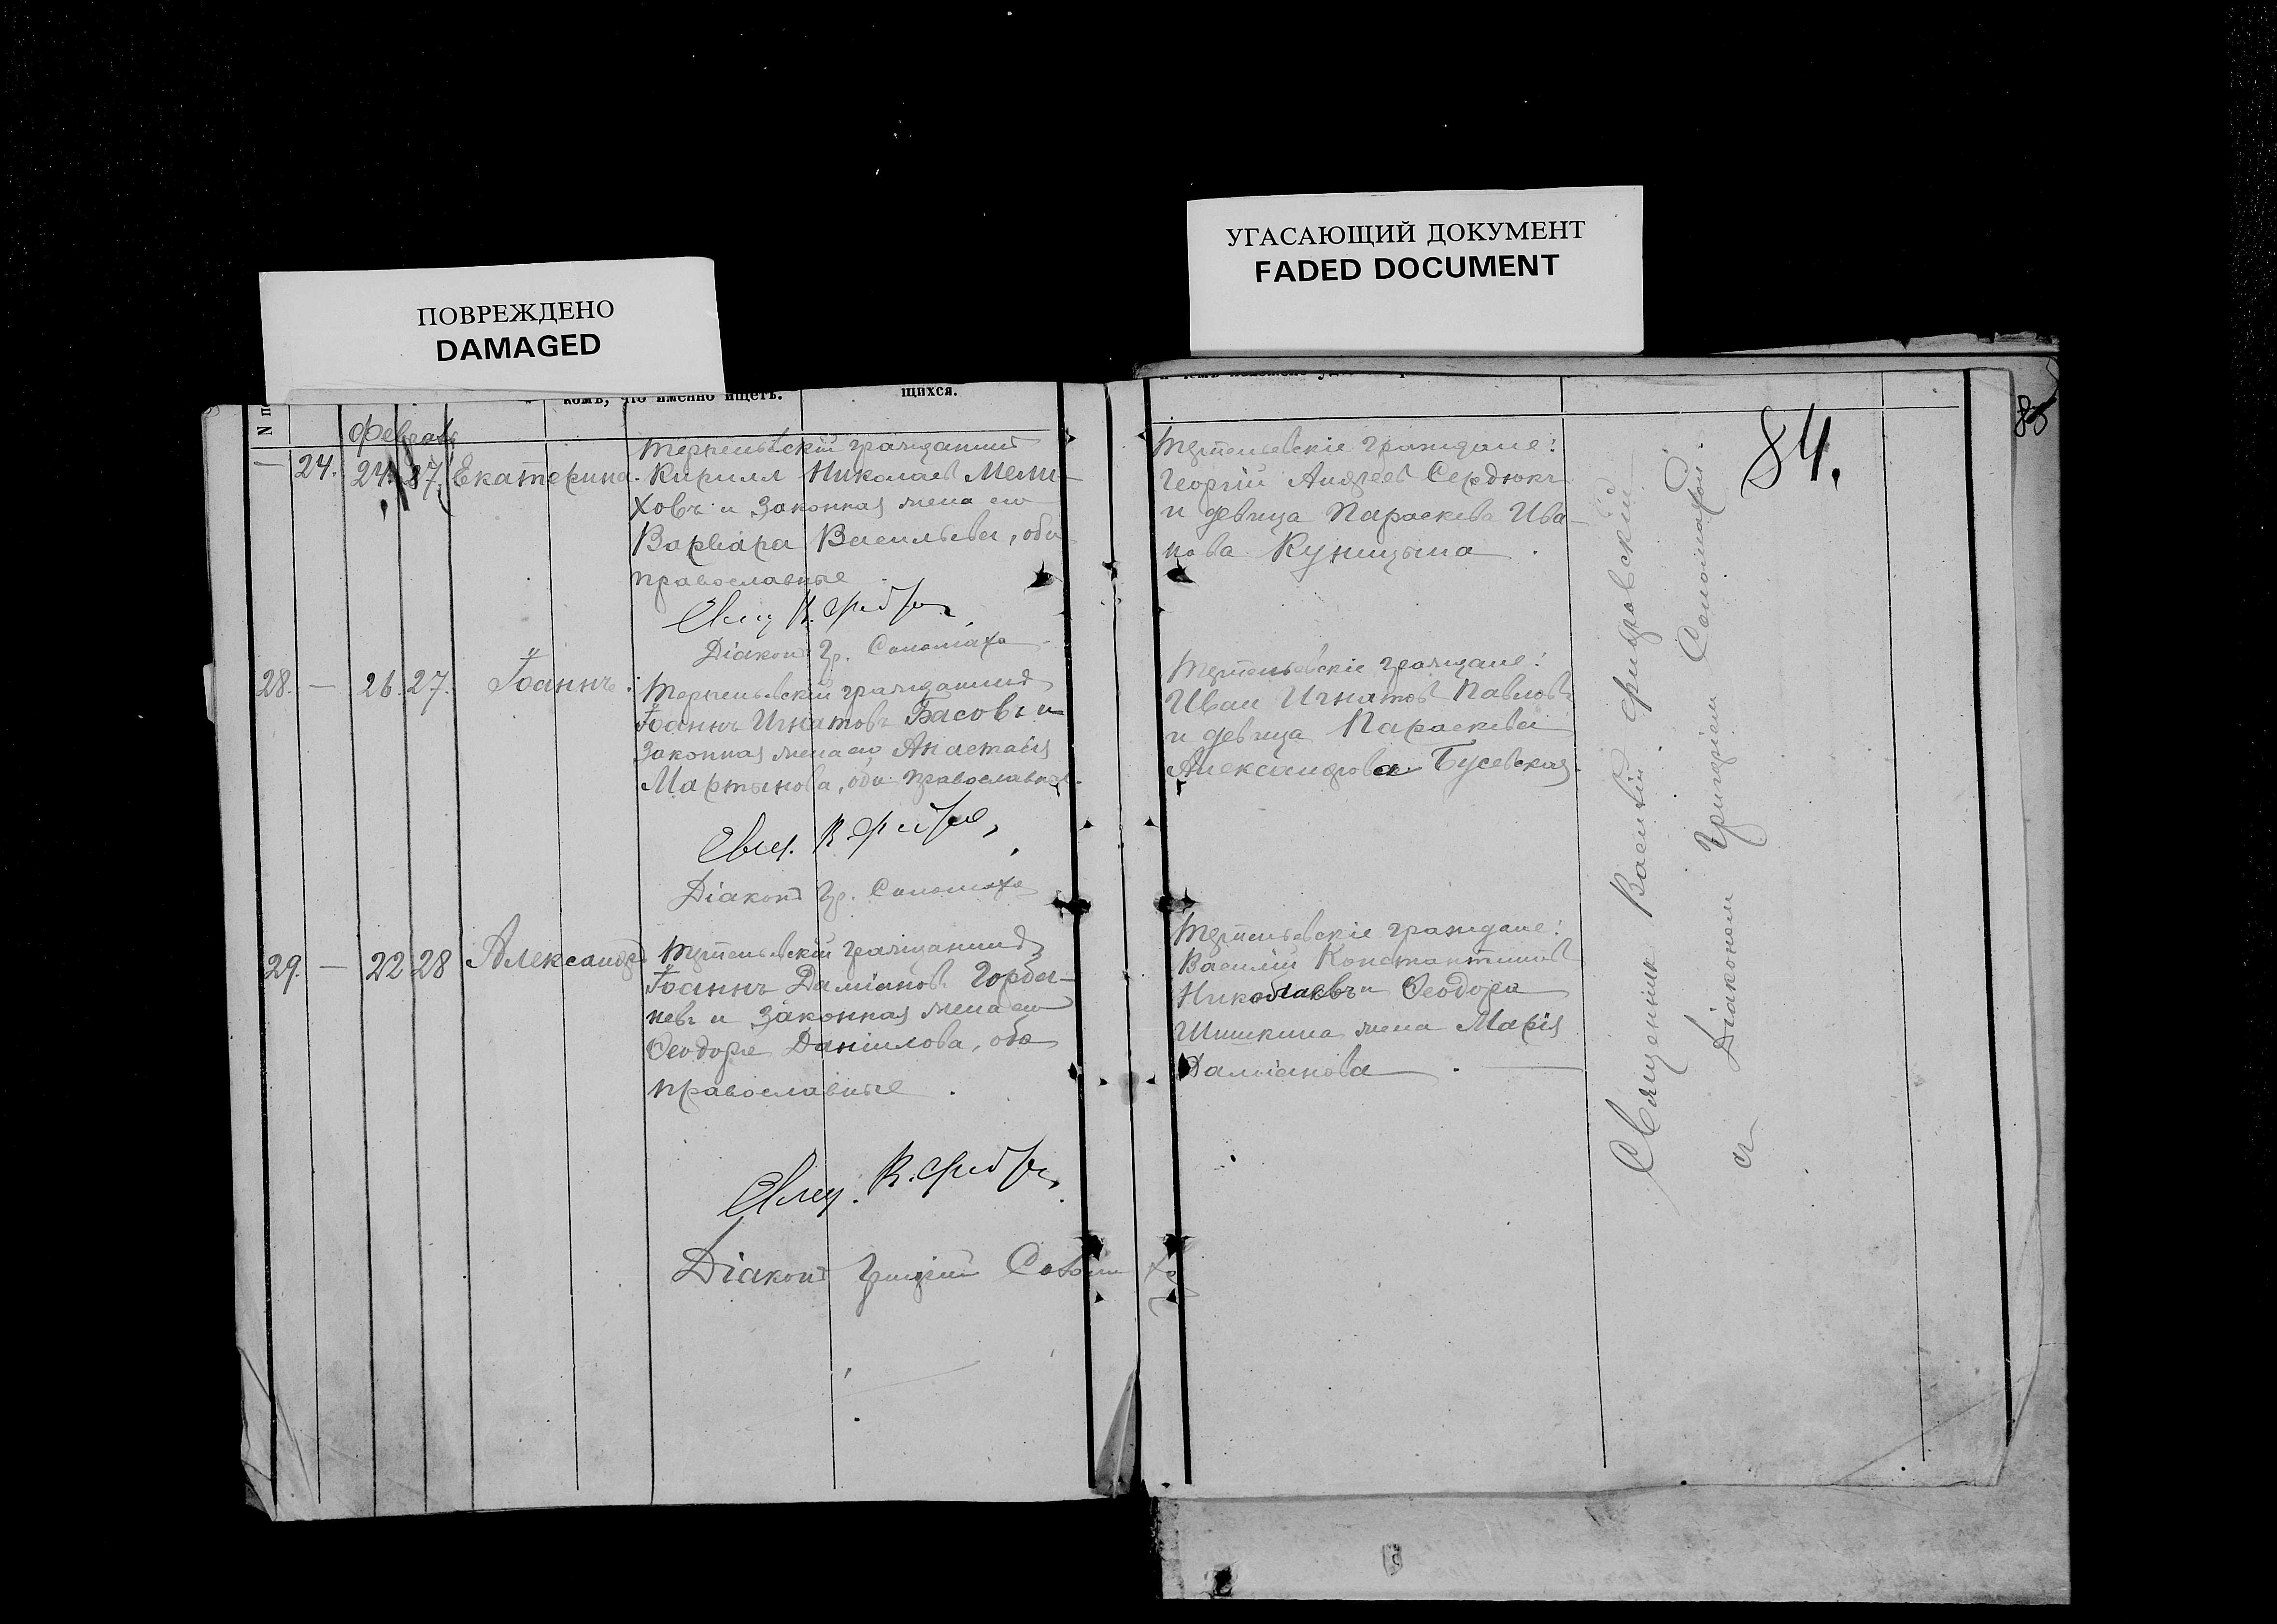 ПОВРЕЖДЕНО
DAMAGED
УГАСАЮЩИЙ ДОКУМЕНТ
FADED DOCUMENT
комъ, что именно ищетъ.
щихся.
84.
Февраль
— 24. 24. 27. Екатерина.
гражданинъ
Кириллъ Николаевъ Мели-
ховъ и законная жена его
Варвара Васильева, оба
православные.
Свящ. В.
Діаконъ Гр. Соломаха
28. — 26. 27. Іоаннъ.
гражданинъ
Іоаннъ Игнатовъ Басовъ и
законная жена его Анастасія
Мартынова, оба православные.
Свящ. В.
Діаконъ Гр. Соломаха
29. — 22 28 Александръ
гражданинъ
Іоаннъ Даміановъ Горба-
невъ и законная жена его
Ѳеодора Даніилова, оба
православные.
Свящ. В.
Діаконъ Григорій
граждане:
Георгій Андреевъ Сердюкъ
и девица Параскева Ива-
нова Куницына.
граждане:
Иван Игнатовъ Павловъ
и девица Параскева
Александрова Бусевская.
граждане:
Василій Константиновъ
Николаевъ и Ѳеодора
Шишкина жена Марія
Даміанова.
Священник Василій
съ Діаконом Григоріем Соломахой.